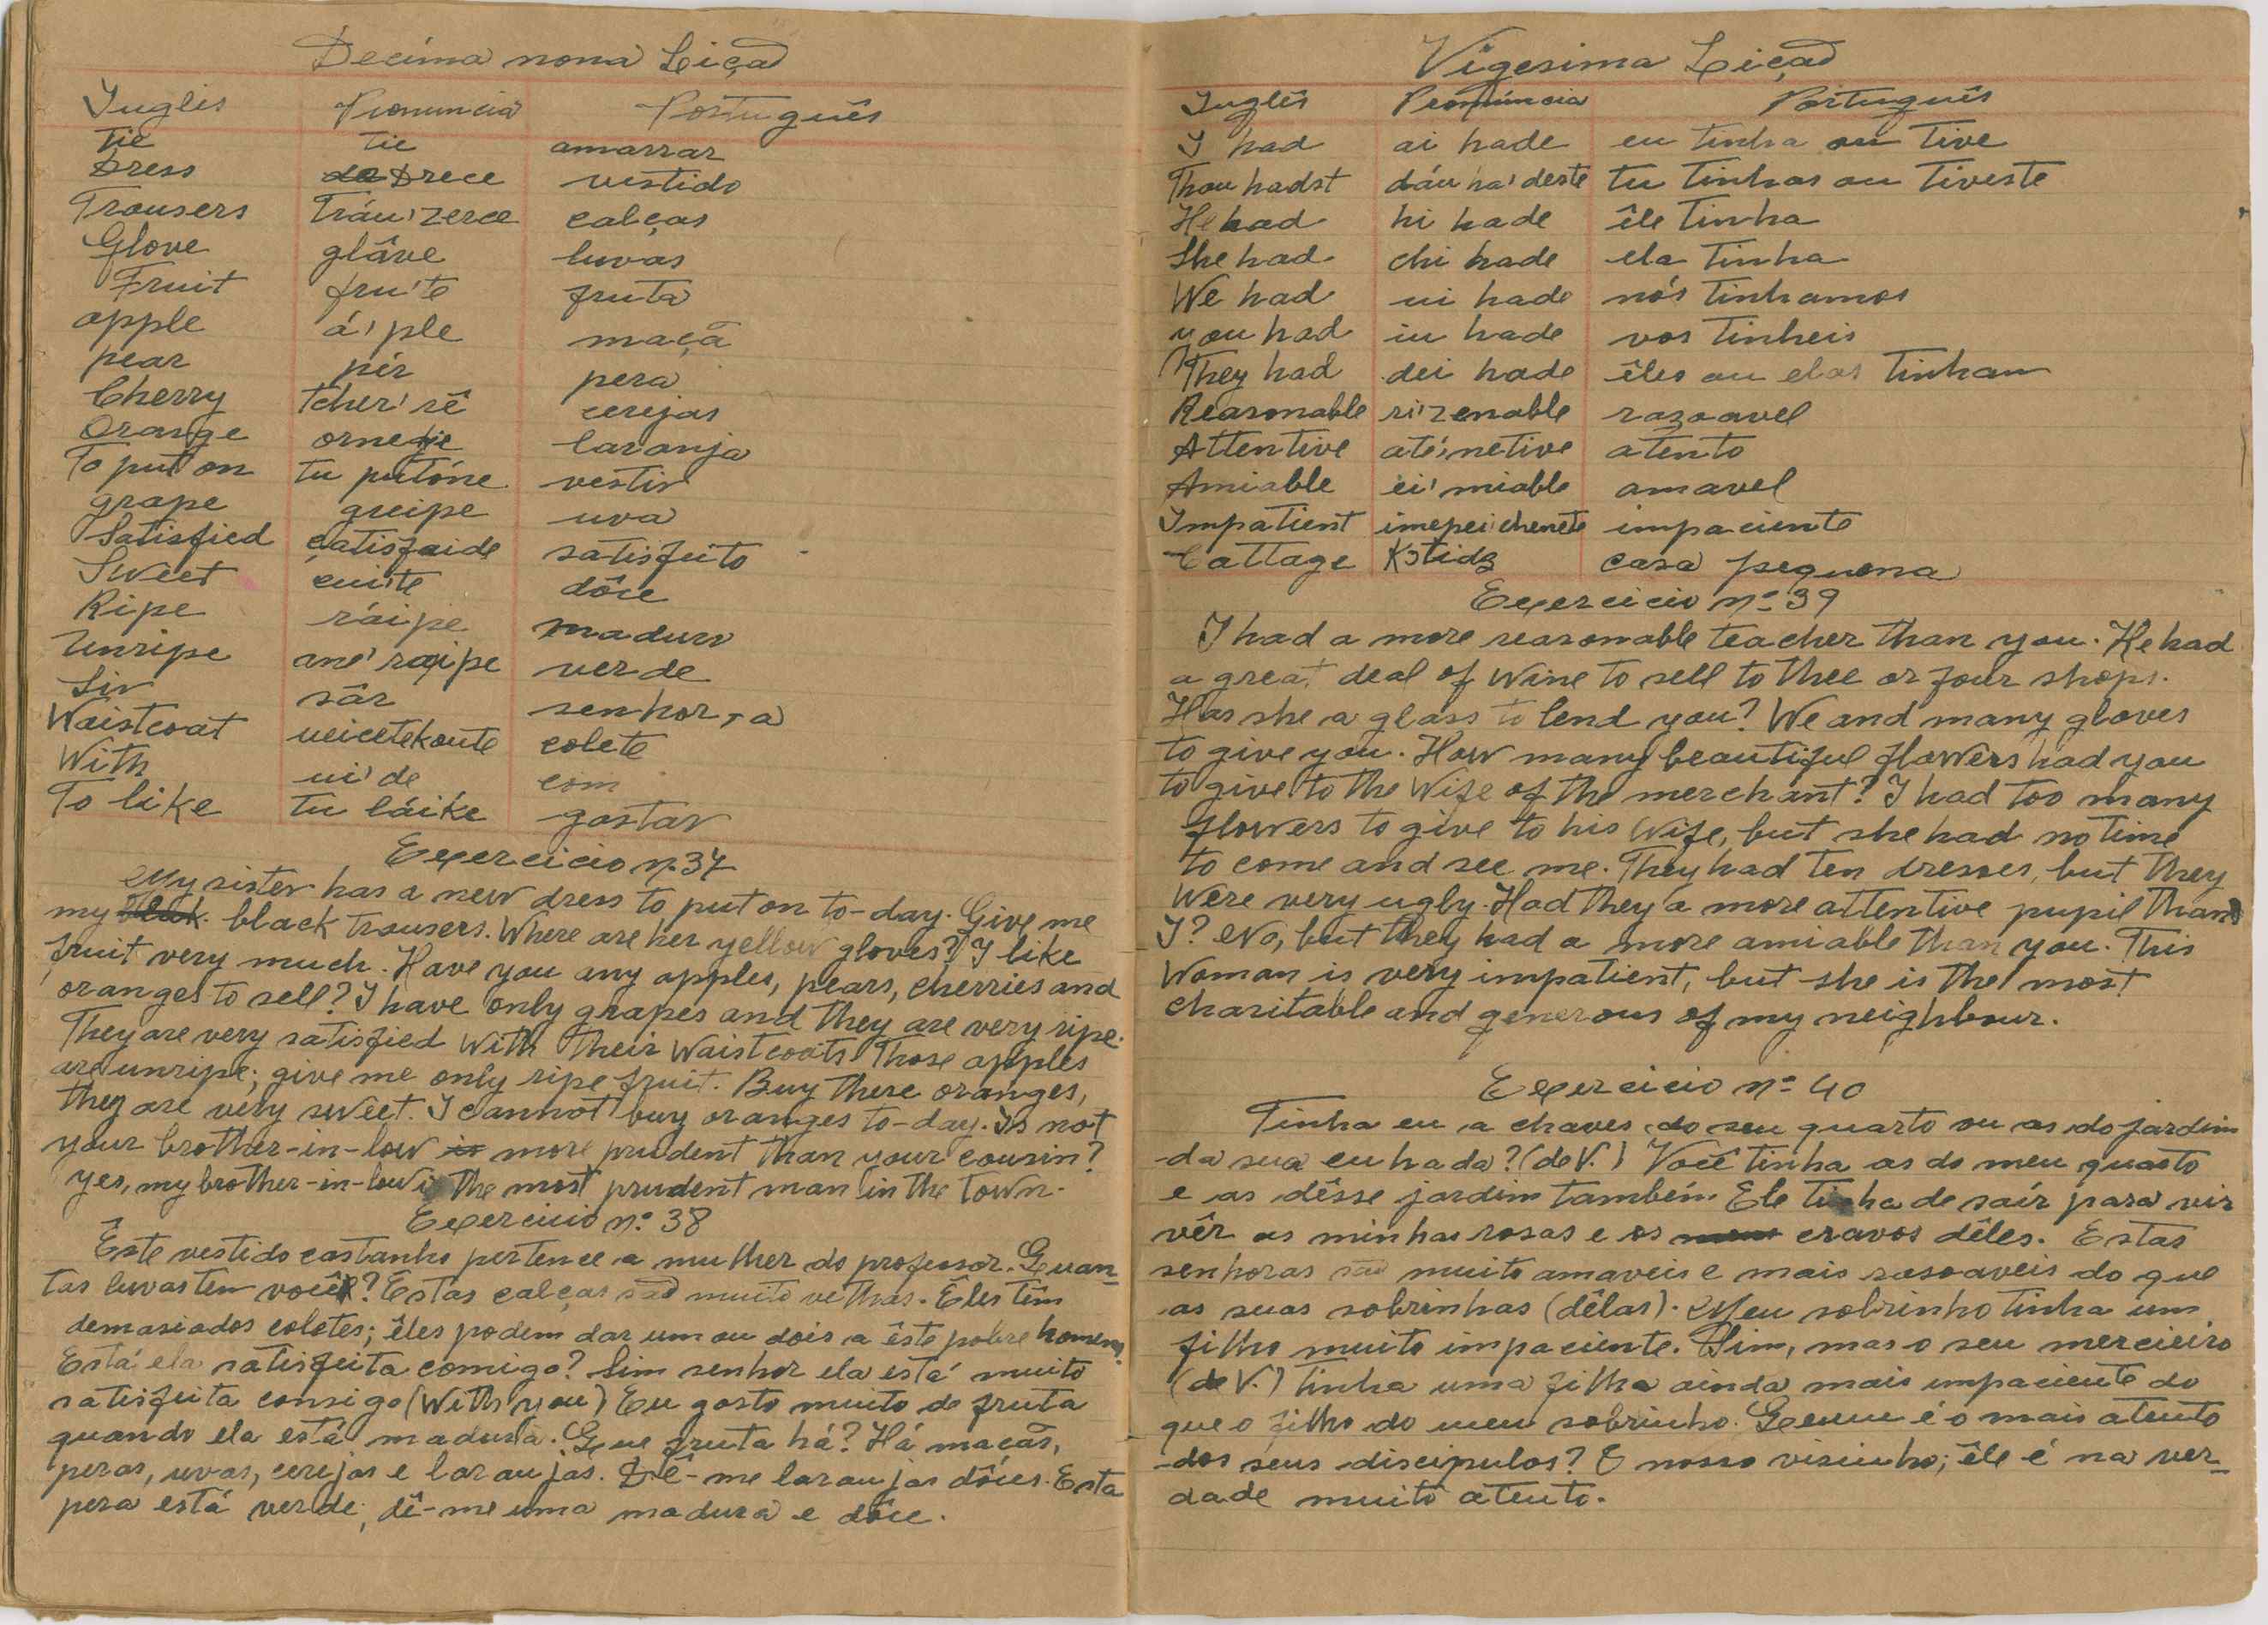 Decima nona Lição
Inglês Pronuncia Português
Tie tie amarrar
Dress Drece vestido
Trousers Tráu'zerce calças
Glove glâve luvas
Fruit fru'te fruta
apple á'ple maçã
pear pér pera
Cherry tcher'rê cerejas
Orange ornedje laranja
To put on tu putóne vestir
grape greipe uva
Satisfied çatisfaide satisfeito
Sweet çuite dôce
Ripe ráipe maduro
Unripe ane'raipe verde
Sir sâr senhor, a
Waistcoat ueicetekoute colete
With ui'de com
To like tu láike gostar
Exercicio n.37
My sister has a new dress to put on to-day. Give me
my black trousers. Where are her yellow gloves? I like
fruit very much. Have you any apples, pears, cherries and
oranges to sell? I have only grapes and they are very ripe.
They are very satisfied with their Waistcoats. Those apples
are unripe; give me only ripe fruit. Buy these oranges,
they are very sweet. I cannot buy oranges to-day. Is not
your brother-in-low more prudent than your cousin?
yes, my brother-in-low is the most prudent man in the town.
Exercicio nº 38
Êste vestido castanho pertence a mulher do professor. Quan-
tas luvas tem você? Estas calças são muito velhas. Êles têm
demasiados coletes; êles podem dar um ou dois a êste pobre homem.
Está ela satisfeita comigo? Sim senhor ela está muito
satisfeita consigo (with you) Eu gosto muito de fruta
quando ela está madura. Que fruta há? Há maçãs,
peras, uvas, cerejas e laranjas. Dê-me laranjas dôces. Esta
pera está verde, dê-me uma madura e dôce.
Vigesima Lição
Inglês Pronúncia Português
I had ai hade eu tinha ou tive
Thou hadst dáu ha'deste tu tinhas ou tiveste
He had hi hade êle tinha
She had chi hade ela tinha
We had ui hade nós tinhamos
you had iu hade vos tinheis
They had dei hade êles ou elas tinham
Reasonable ri'zenable razoavel
Attentive até'netive atento
Amiable êi'miable amavel
Impatient imepei'chenete impaciente
Cattage Kɔtidʒ casa pequena
Exercicio nº 39
I had a more reasonable teacher than you. He had
a great deal of wine to sell to thee or four shops.
Has she a glass to lend you? We and many gloves
to give you. How many beautiful flowers had you
to give to the wife of the merchant? I had too many
flowers to give to his wife, but she had no time
to come and see me. They had ten dresses, but they
were very ugly. Had they a more attentive pupil than
I? No, but they had a more amiable than you. This
woman is very impatient, but she is the most
charitable and generous of my neighbour.
Exercicio nº 40
Tinha eu a chaves do seu quarto ou as do jardim
da sua cunhada? (de V.) Você tinha as do meu quarto
e as dêsse jardim também. Ele tinha de saír para vir
vêr as minhas rosas e os cravos dêles. Estas
senhoras são muito amaveis e mais rasoaveis do que
as suas sobrinhas (délas). Meu sobrinho tinha um
filho muito impaciente. Sim, mas o seu mercieiro
(de V.) tinha uma filha ainda mais impaciente do
que o filho do meu sobrinho. Quem é o mais atento
dos seus discipulos? O nosso visinho; êle é na ver-
dade muito atento.